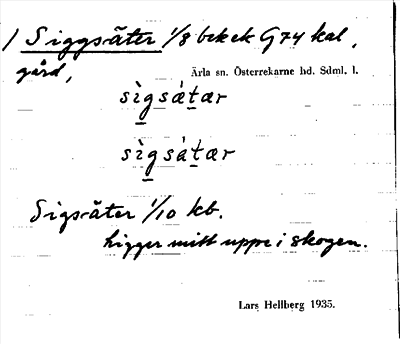 1 Siggsäter 1/8 bek ek G74 kal,
gård,
Ärla sn. Österrekarne hd. Sdml. l.
sìgsǽtær
sìgsàtær
Sigsäter 1/10 kb.
ligger mitt uppe i skogen.
Lars Hellberg 1935.